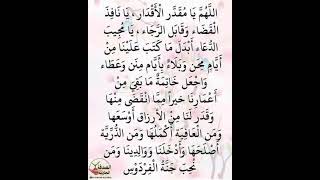 اللَّهُمَّ يَا مُقَدِّرَ الْأَقْدَارِ ، يَا نَافِذَ
الْقَضَاءِ وَقَابِلَ الرَّجَاءِ ، يَا مُجِيبَ
الدُّعَاءِ أَبْدِلْ مَا كَتَبَ عَلَيْنَا مِنْ
أَيَّامِ مِحَنٍ وَبَلَاءٍ بِأَيَّامِ مِنَنٍ وَعَطَاءٍ
وَاجْعَلْ خَاتِمَةَ مَا بَقِيَ مِنْ
أَعْمَارِنَا خَيْراً مِمَّا انْقَضَى مِنْهَا
وَقَدِّرْ لَنَا مِنَ الْأَرْزَاقِ أَوْسَعَهَا
وَمِنَ الْعَافِيَةِ أَكْمَلَهَا وَمِنَ الذُّرِّيَّةِ
أَصْلَحَهَا وَأَدْخِلْنَا وَوَالِدِينَا وَمَنْ
نُحِبُّ جَنَّةَ الْفِرْدَوْسِ